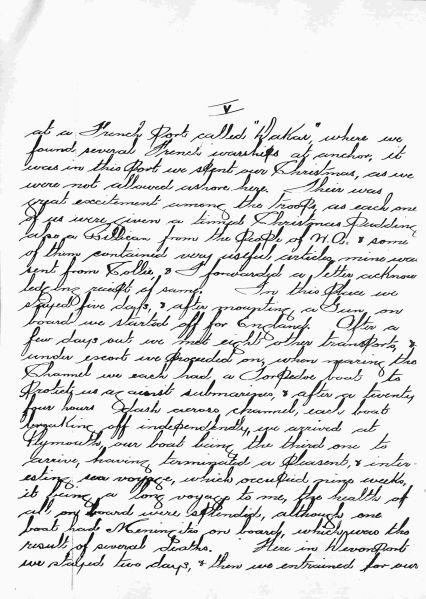 V
at a French Port called "Dakar", where we
found several French warships at anchor, it
was in this Port we spent our Christmas, as we
were not allowed ashore here. Their was
great excitement among the troops, as each one
of us were given a tinned Christmas Pudding
also a Billican from the People of W.A. & some
of them contained very useful articles, mine was
sent from Collie, & I forwarded a letter acknow
ledging receipt of same. In this place we
stayed five days, & after mounting a Gun on
board we started off for England. After a
few days out we met eight other transports, &
under escort we proceeded on, when nearing the
Channel we each had a Torpedoe boat to
Protect us against submarines, & after a twenty
four hours dash across channel, each boat
breaking off independently, we arrived at
Plymouth, our boat being the third one to
arrive, having terminated a pleasent, & inter-
esting sea voyage, which occupied nine weeks,
it being a long voyage to me, the health of
all on board were splendid, although one
boat had Meningitis on board, which was the
result of several deaths. Here in Devonport
we stayed two days, & then we entrained for our